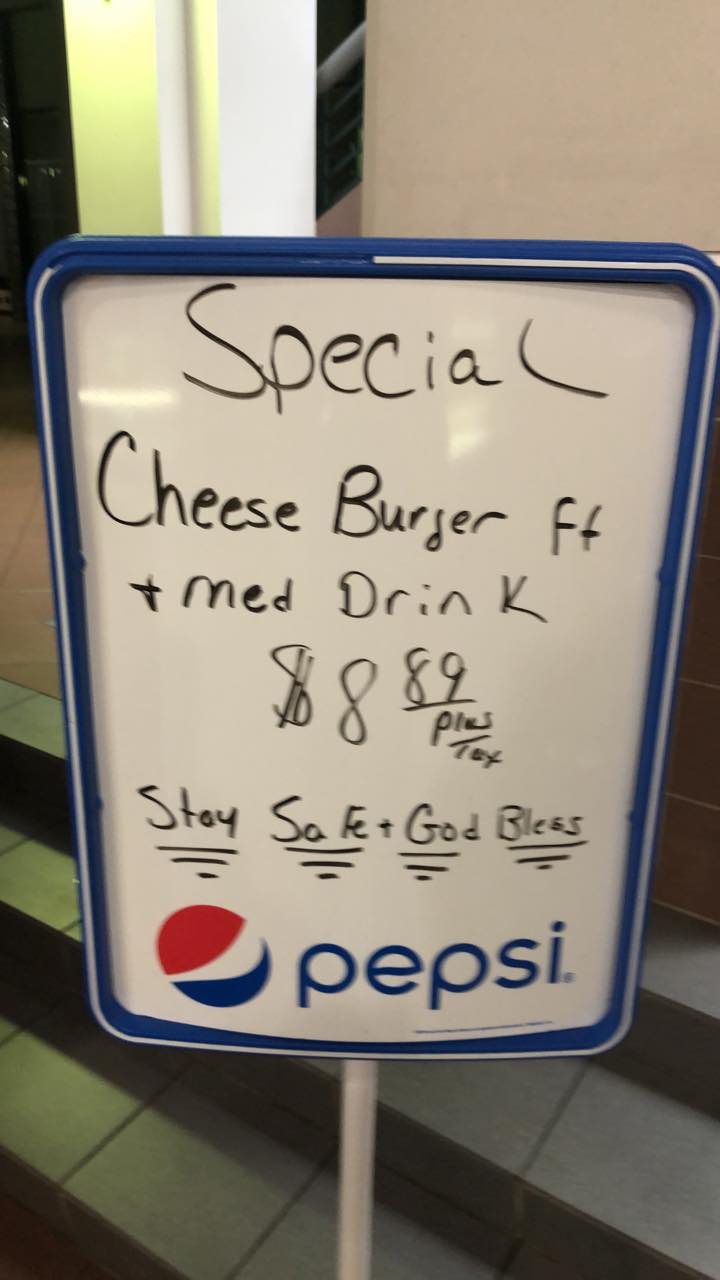 Special
Cheese Burger ff
+ med Drink
$8 89
plus
Tax
Stay Safe + God Bless
pepsi